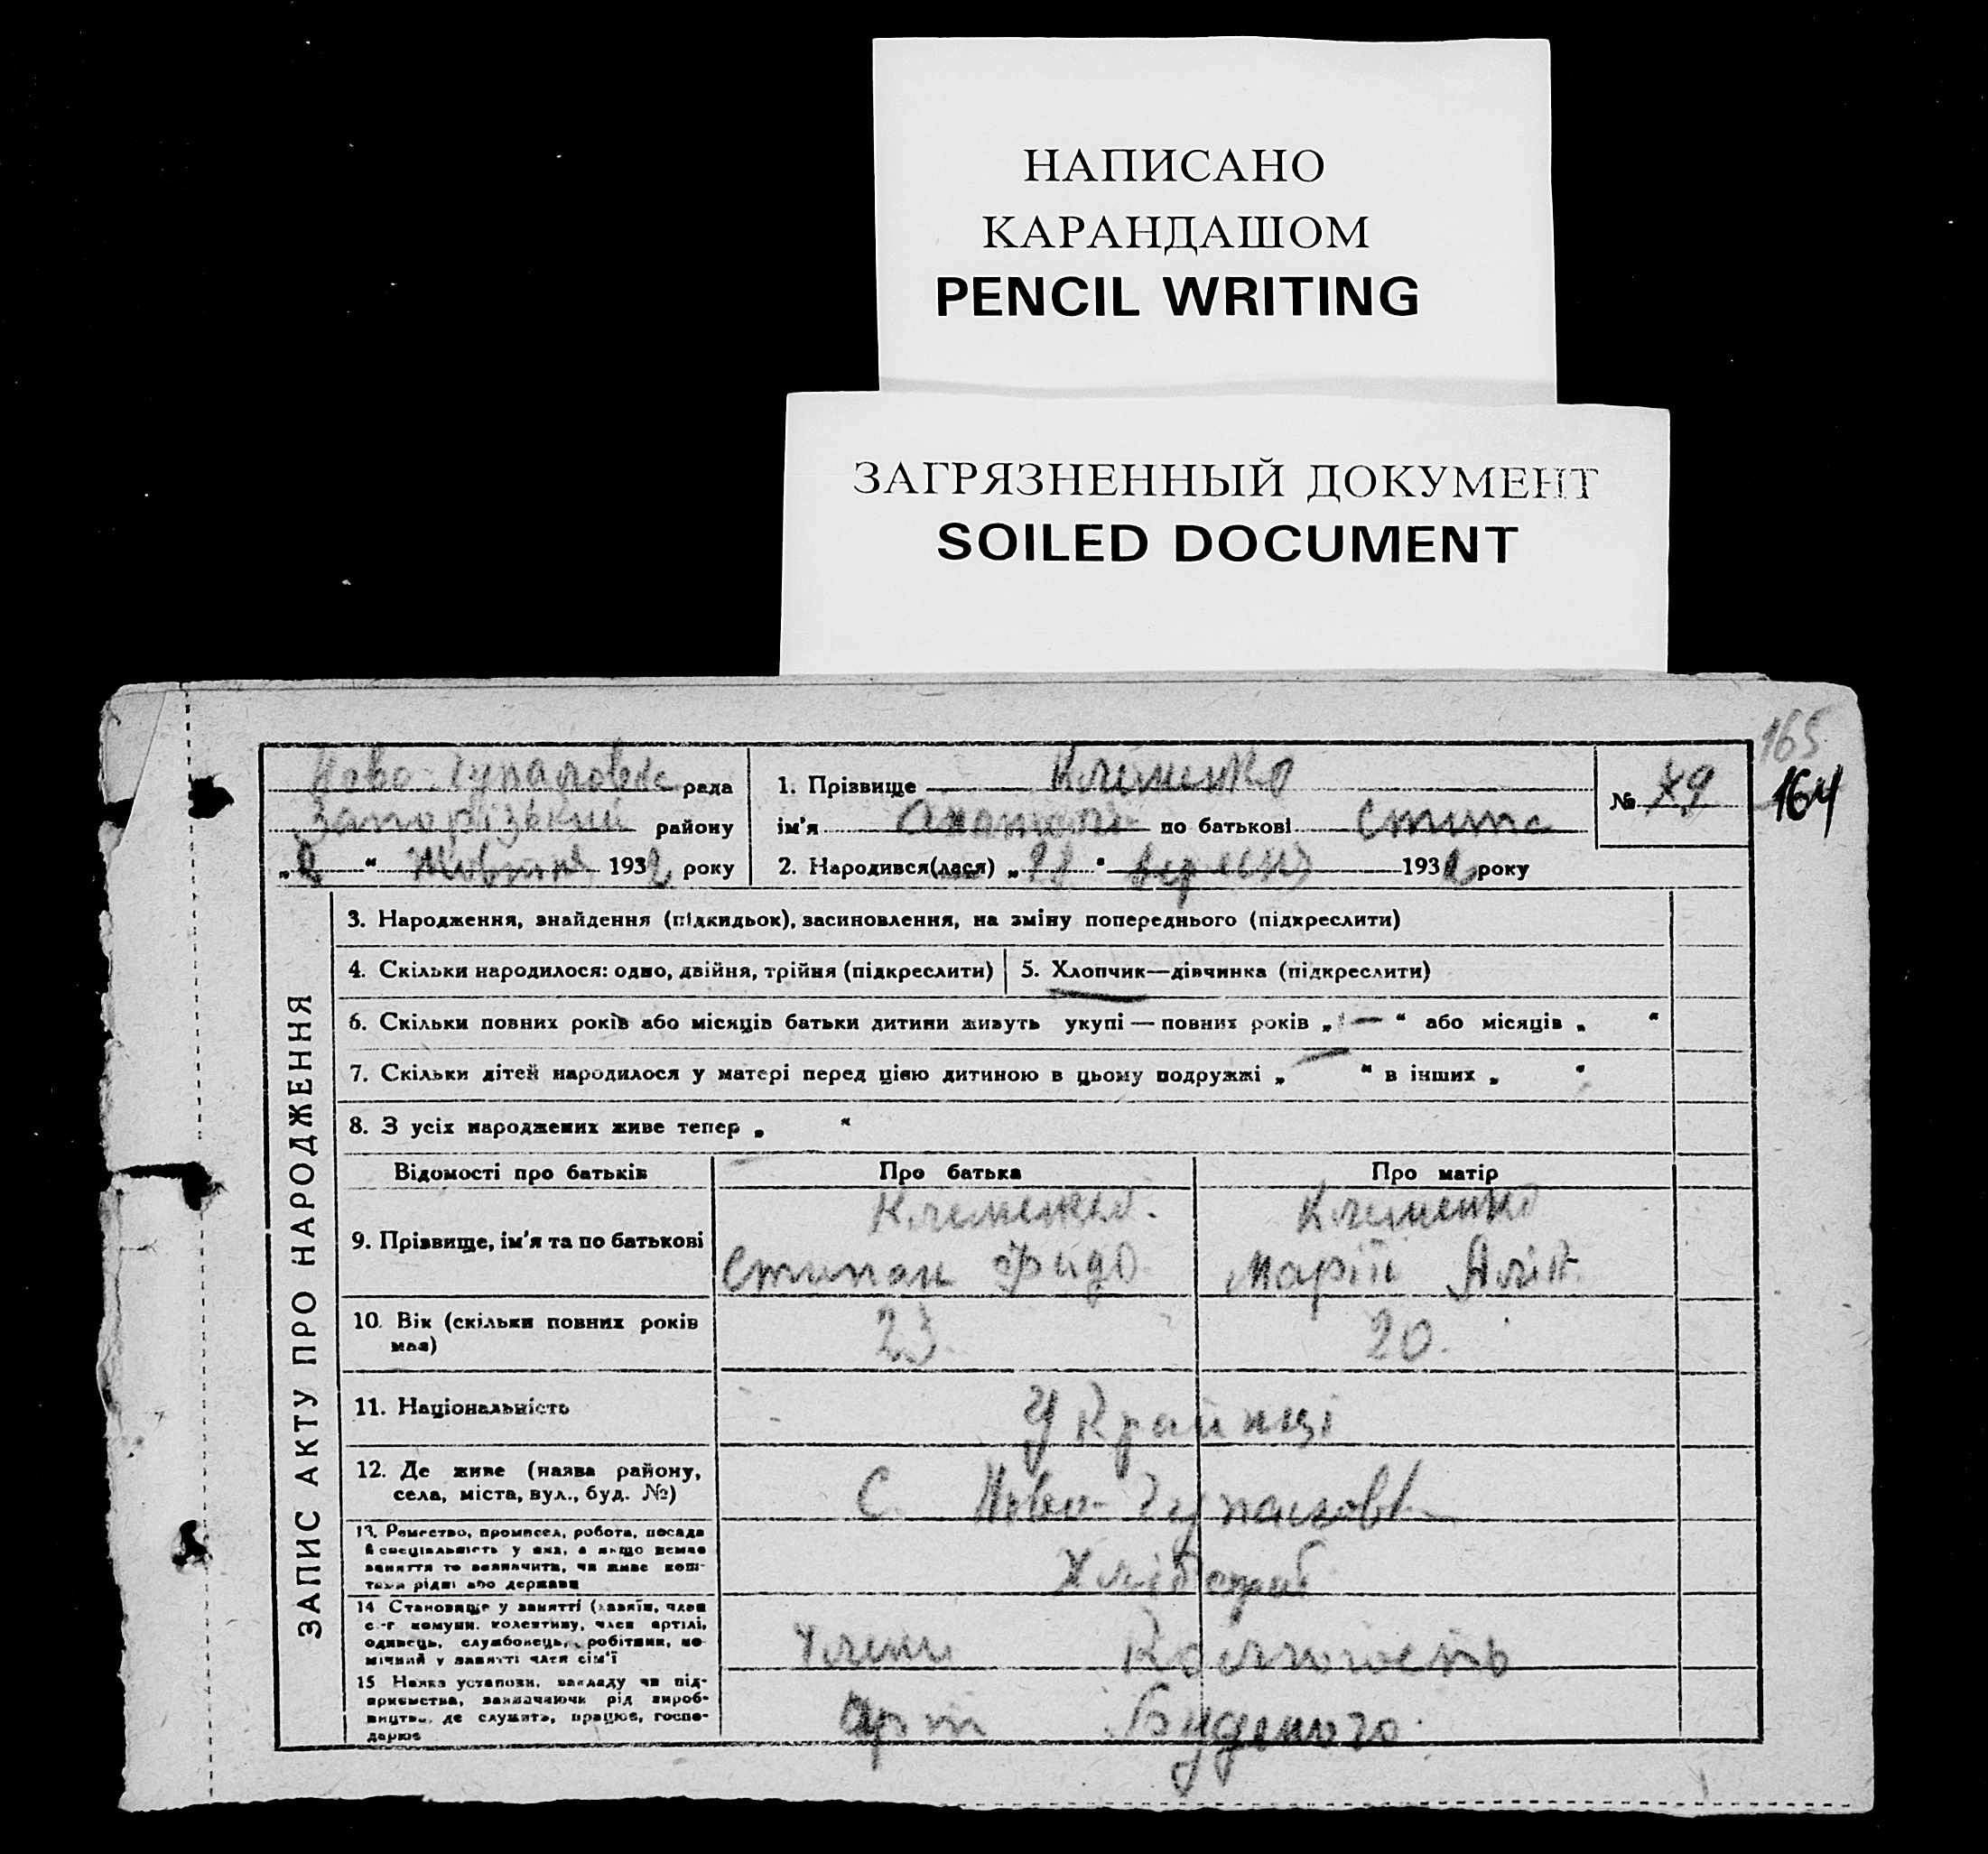 НАПИСАНО
КАРАНДАШОМ
PENCIL WRITING
ЗАГРЯЗНЕННЫЙ ДОКУМЕНТ
SOILED DOCUMENT
165
164
Ново-Гупаловск рада
Запорізький району
„ “ Жовтня 1932 року
1. Прізвище Клименко
ім’я Анатолі по батькові Стипа
№ 49
2. Народився(лася) „28“ вересня 1932 року
ЗАПИС АКТУ ПРО НАРОДЖЕННЯ
3. Народження, знайдення (підкидьок), засиновлення, на зміну попереднього (підкреслити)
4. Скільки народилося: одно, двійня, трійня (підкреслити)
5. Хлопчик—дівчинка (підкреслити)
6. Скільки повних років або місяців батьки дитини живуть укупі — повних років „ — “ або місяців „ “
7. Скільки дітей народилося у матері перед цією дитиною в цьому подружжі „ “ в інших „ “
8. З усіх народжених живе тепер „ “
Відомості про батьків Про батька Про матір
9. Прізвище, ім’я та по батькові
Клименко Клименко
Стипан Фидо Марія
10. Вік (скільки повних років
має)
23 20.
11. Національність
Українці
12. Де живе (назва району,
села, міста, вул., буд. №)
С. Ново-Гупаловк
13. Ремество, промисел, робота, посада
й спеціальність у яка, а якщо немає
заняття то зазначити, чи живе кош-
тами рідні або держави
Хлібороб
14. Становище у занятті (хазяїн, член
с.-г комуни, колективу, член артілі,
одинець, службовець, робітник, по-
мічний у занятті член сім’ї
Члени
15. Назва установи, закладу чи під-
приємства, зазначаючи рід вироб-
ництва, де служить, працює, госпо-
дарює
Арт Буденого